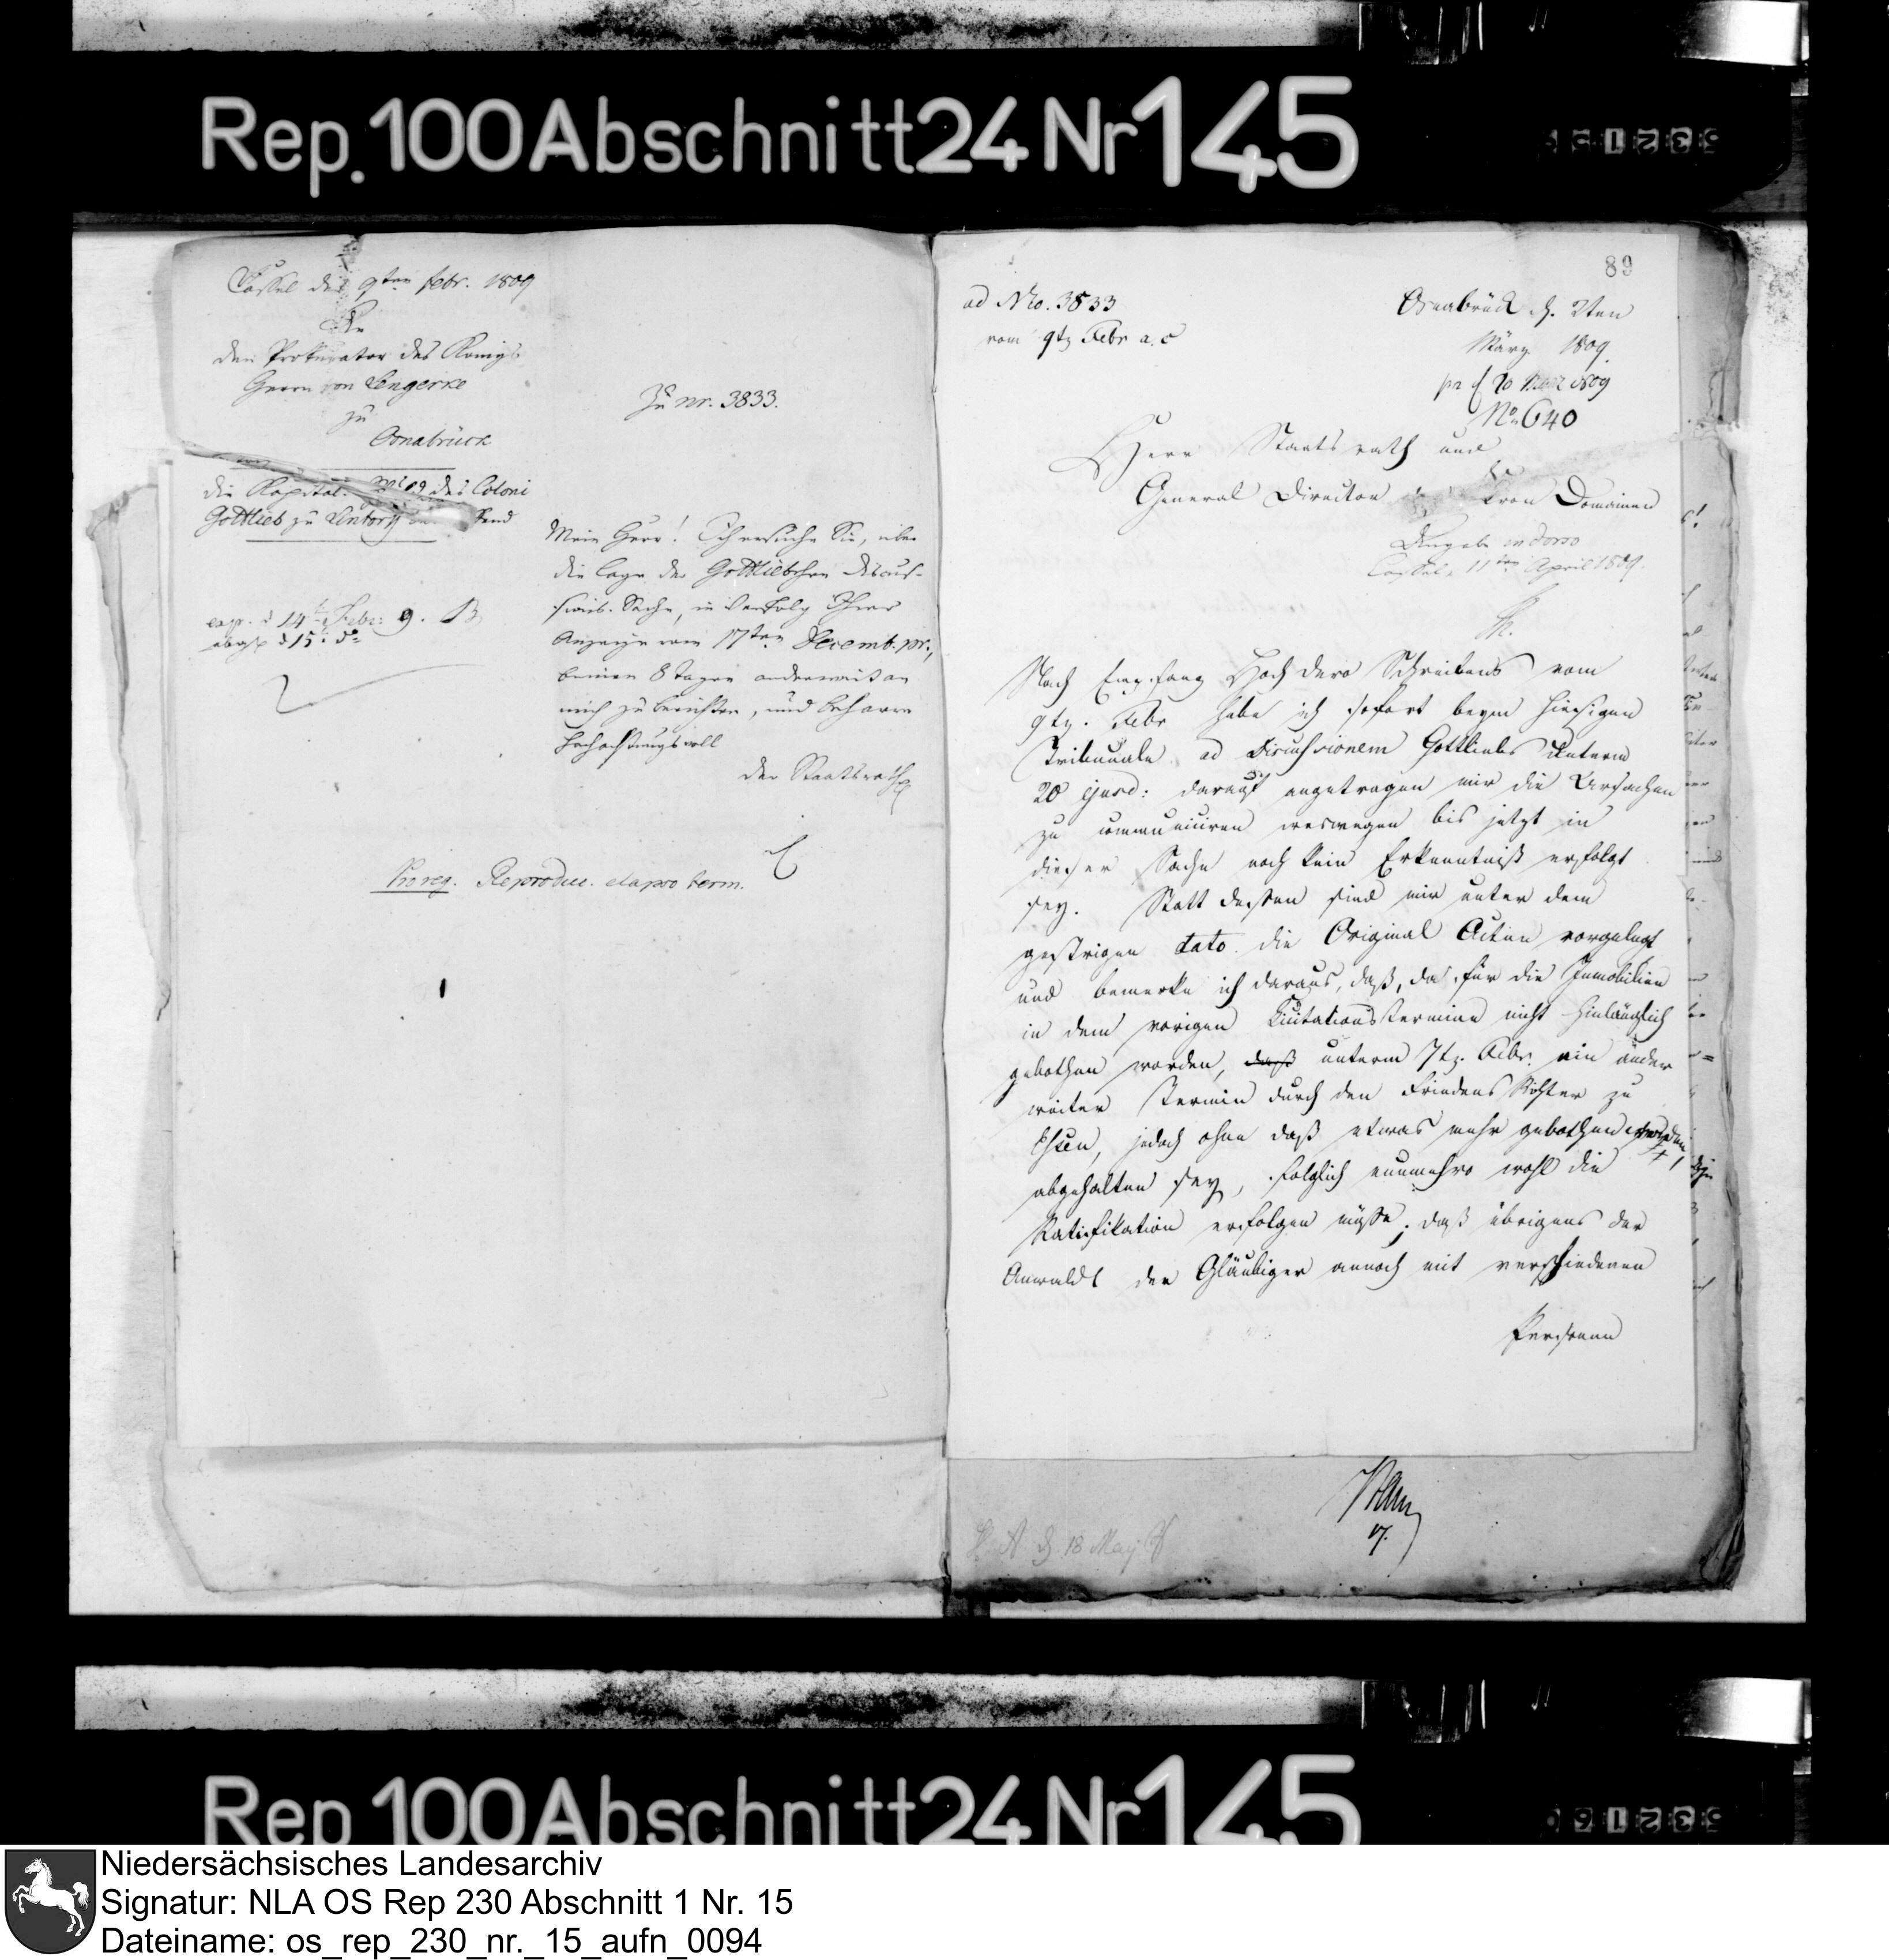 Rep. 100 Abschnitt 24 Nr 145
Cassel den 9ten febr. 1809
An
den Prokurator des Königs
Herrn von Lengerke
zu
Osnabrück
Zu nr. 3833.
die Kapital. des Coloni
Gottlieb zu
cop. d 14t Febr: 9. B
abgs d 15t do
Mein Herr! Ich ersuche Sie, über
die Lage der Gottliebschen Discus-
sions-Sache, in Verfolg Ihrer
Anzeige vom 17ten Decemb. pr.,
binnen 8 Tagen anderweit an
mich zu berichten, und beharre
hochachtungsvoll
der Staatsrath
Pro reg. Reproduc. elapso term.
89
ad Nro. 3833
vom 9tn Febr a. c
Osnabrück d. 2ten
März 1809.
pr d 20 Merz 1809
No. 640
Herr Staatsrath und
General Director der Kron Domainen
in dorso
Cassel, 11ten April 1809.
Nach Empfang Hoch dero Schreibens vom
9tn. Febr habe ich sofort beym hiesigen
Tribunale ad Discussionem Gottliebs unterm
20 ejusd: darauf angetragen mir die Ursachen
zu communiciren weswegen bis jetzt in
dieser Sache noch kein Erkenntniß erfolgt
sey. Statt dessen sind mir unter dem
gestrigen dato die Original Acten vorgelegt
und bemerke ich daraus, daß, da für die Immobilien
in dem vorigen Licitationstermine nicht hinlänglich
gebothen worden, daß unterm 7tn. Febr. ein ander
weiter Termin durch den Friedens Richter zu
Essen, jedoch ohne daß etwas mehr gebothen worden,
abgehalten sey, folglich nunmehro wohl die
Ratifikation erfolgen müsse; daß übrigens der
Anwald der Gläubiger annoch mit verschiedenen
Personen
18 May
17.
Rep 100 Abschnitt 24 Nr 145
Niedersächsisches Landesarchiv
Signatur: NLA OS Rep 230 Abschnitt 1 Nr. 15
Dateiname: os_rep_230_nr._15_aufn_0094